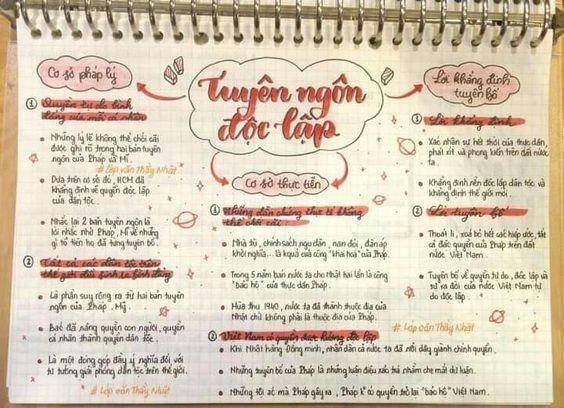 Tuyên ngôn
độc lập
Cơ sở pháp lý
① Quyền tự do bình
đẳng của mỗi cá nhân
• Những lý lẽ không thể chối cãi
được ghi rõ trong hai bản tuyên
ngôn của Pháp và Mĩ.
# Lớp văn Thầy Nhật
• Dựa trên cơ sở đó, HCM đã
khẳng định về quyền độc lập
của dân tộc.
• Nhắc lại 2 bản tuyên ngôn là
lời nhắc nhở Pháp, Mĩ về những
gì tổ tiên họ đã từng tuyên bố.
② Tất cả các dân tộc trên
thế giới đều sinh ra bình đẳng
• Là phần suy rộng ra từ hai bản tuyên
ngôn của Pháp, Mỹ.
• Bác đã nâng quyền con người, quyền
cá nhân thành quyền dân tộc.
• Là một đóng góp đầy ý nghĩa đối với
tư tưởng giải phóng dân tộc trên thế giới.
# Lớp văn Thầy Nhật
Cơ sở thực tiễn
① Những dẫn chứng thực tế không
thể chối cãi:
• Nhà tù, chính sách ngu dân, nạn đói, đàn áp
khởi nghĩa... là kquả của công "khai hoá" của Pháp.
• Trong 5 năm bán nước ta cho Nhật hai lần là công
"bảo hộ" của thực dân Pháp.
• Mùa thu 1940, nước ta đã thành thuộc địa của
Nhật chứ không phải là thuộc địa của Pháp.
② Việt Nam có quyền được hưởng độc lập
• Khi Nhật hàng Đồng minh, nhân dân cả nước ta đã nổi dậy giành chính quyền.
• Những tuyên bố của Pháp là những luận điệu xảo trá nhằm che mắt dư luận.
• Những tội ác mà Pháp gây ra, Pháp k° có quyền trở lại "bảo hộ" Việt Nam.
Lời khẳng định
tuyên bố
① Lời khẳng định
• Xác nhận sự hết thời của thực dân,
phát xít và phong kiến trên đất nước
ta.
• Khẳng định nền độc lập dân tộc và
khẳng định thế giới mới.
② Lời tuyên bố
• Thoát li, xoá bỏ hết các hiệp ước, tất
cả đặc quyền của Pháp trên đất
nước Việt Nam.
• Tuyên bố về quyền tự do, độc lập và
sự ra đời của nước Việt Nam tự
do độc lập.
# Lớp văn Thầy Nhật